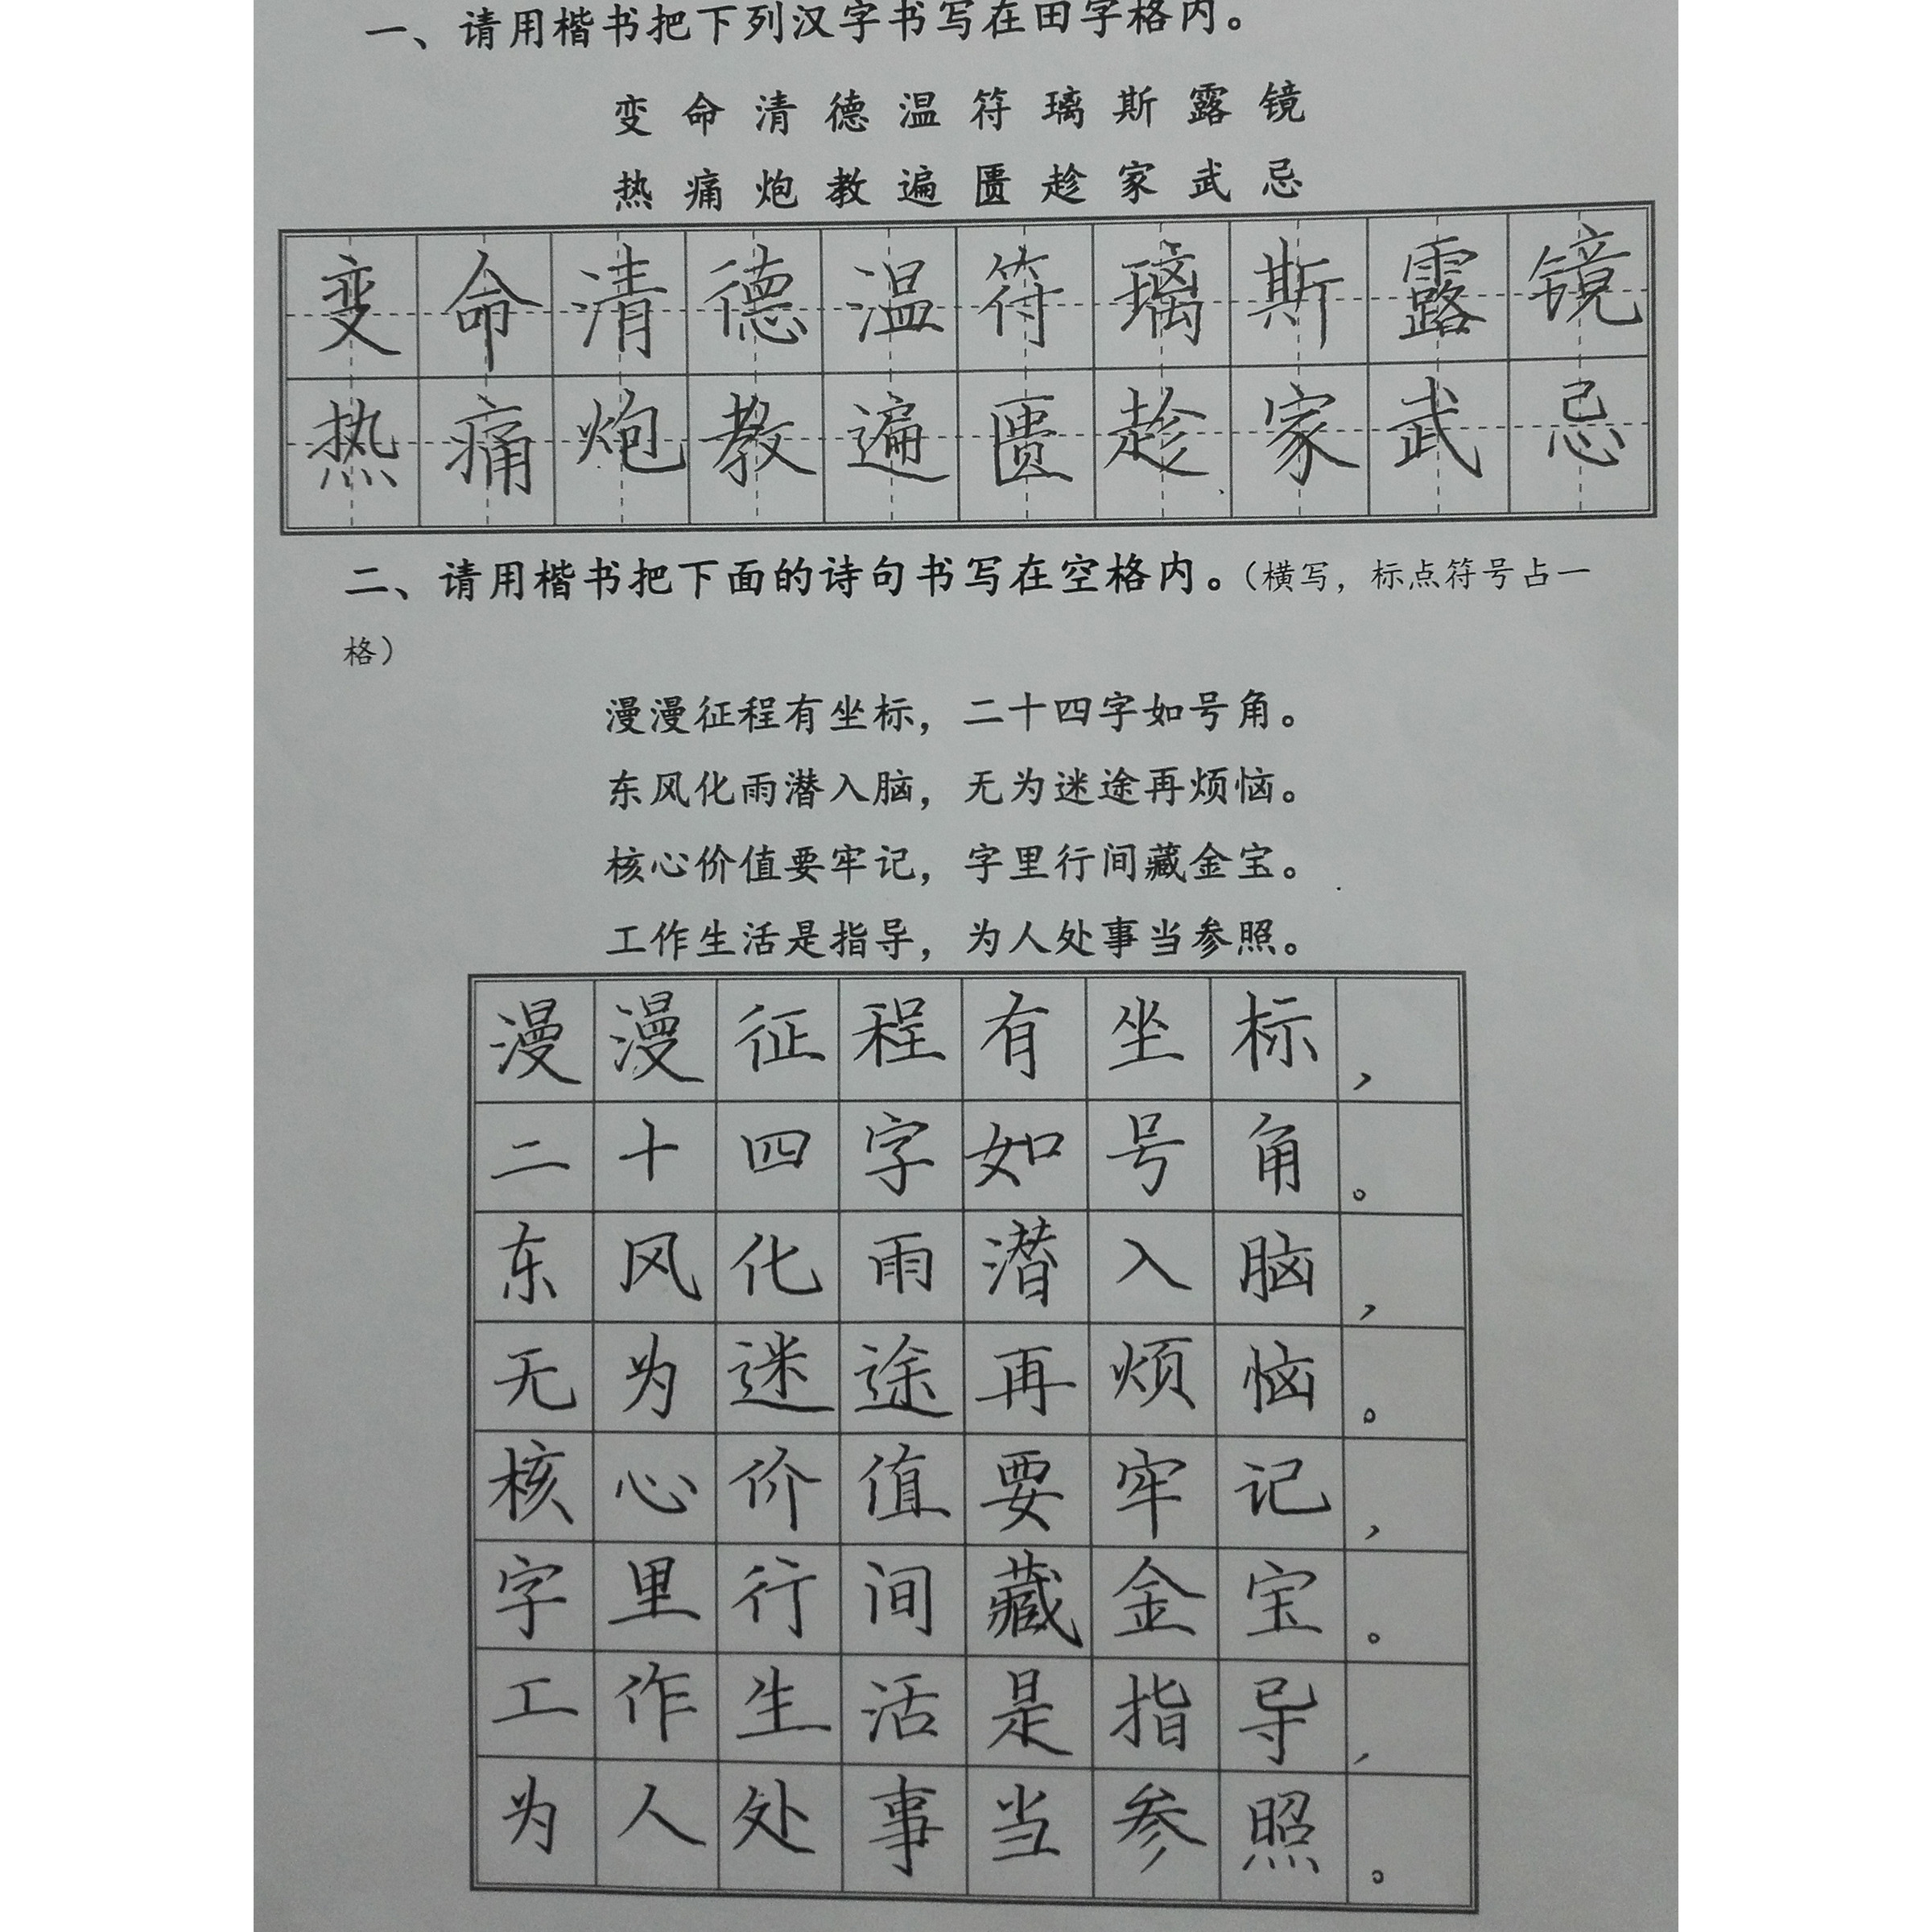 一、请用楷书把下列汉字书写在田字格内。
变 命 清 德 温 符 璃 斯 露 镜
热 痛 炮 教 遍 匮 趁 家 武 忌
变 命 清 德 温 符 璃 斯 露 镜
热 痛 炮 教 遍 匮 趁 家 武 忌
二、请用楷书把下面的诗句书写在空格内。（横写，标点符号占一
格）
漫漫征程有坐标，二十四字如号角。
东风化雨潜入脑，无为迷途再烦恼。
核心价值要牢记，字里行间藏金宝。
工作生活是指导，为人处事当参照。
漫漫征程有坐标，
二十四字如号角。
东风化雨潜入脑，
无为迷途再烦恼。
核心价值要牢记，
字里行间藏金宝。
工作生活是指导，
为人处事当参照。